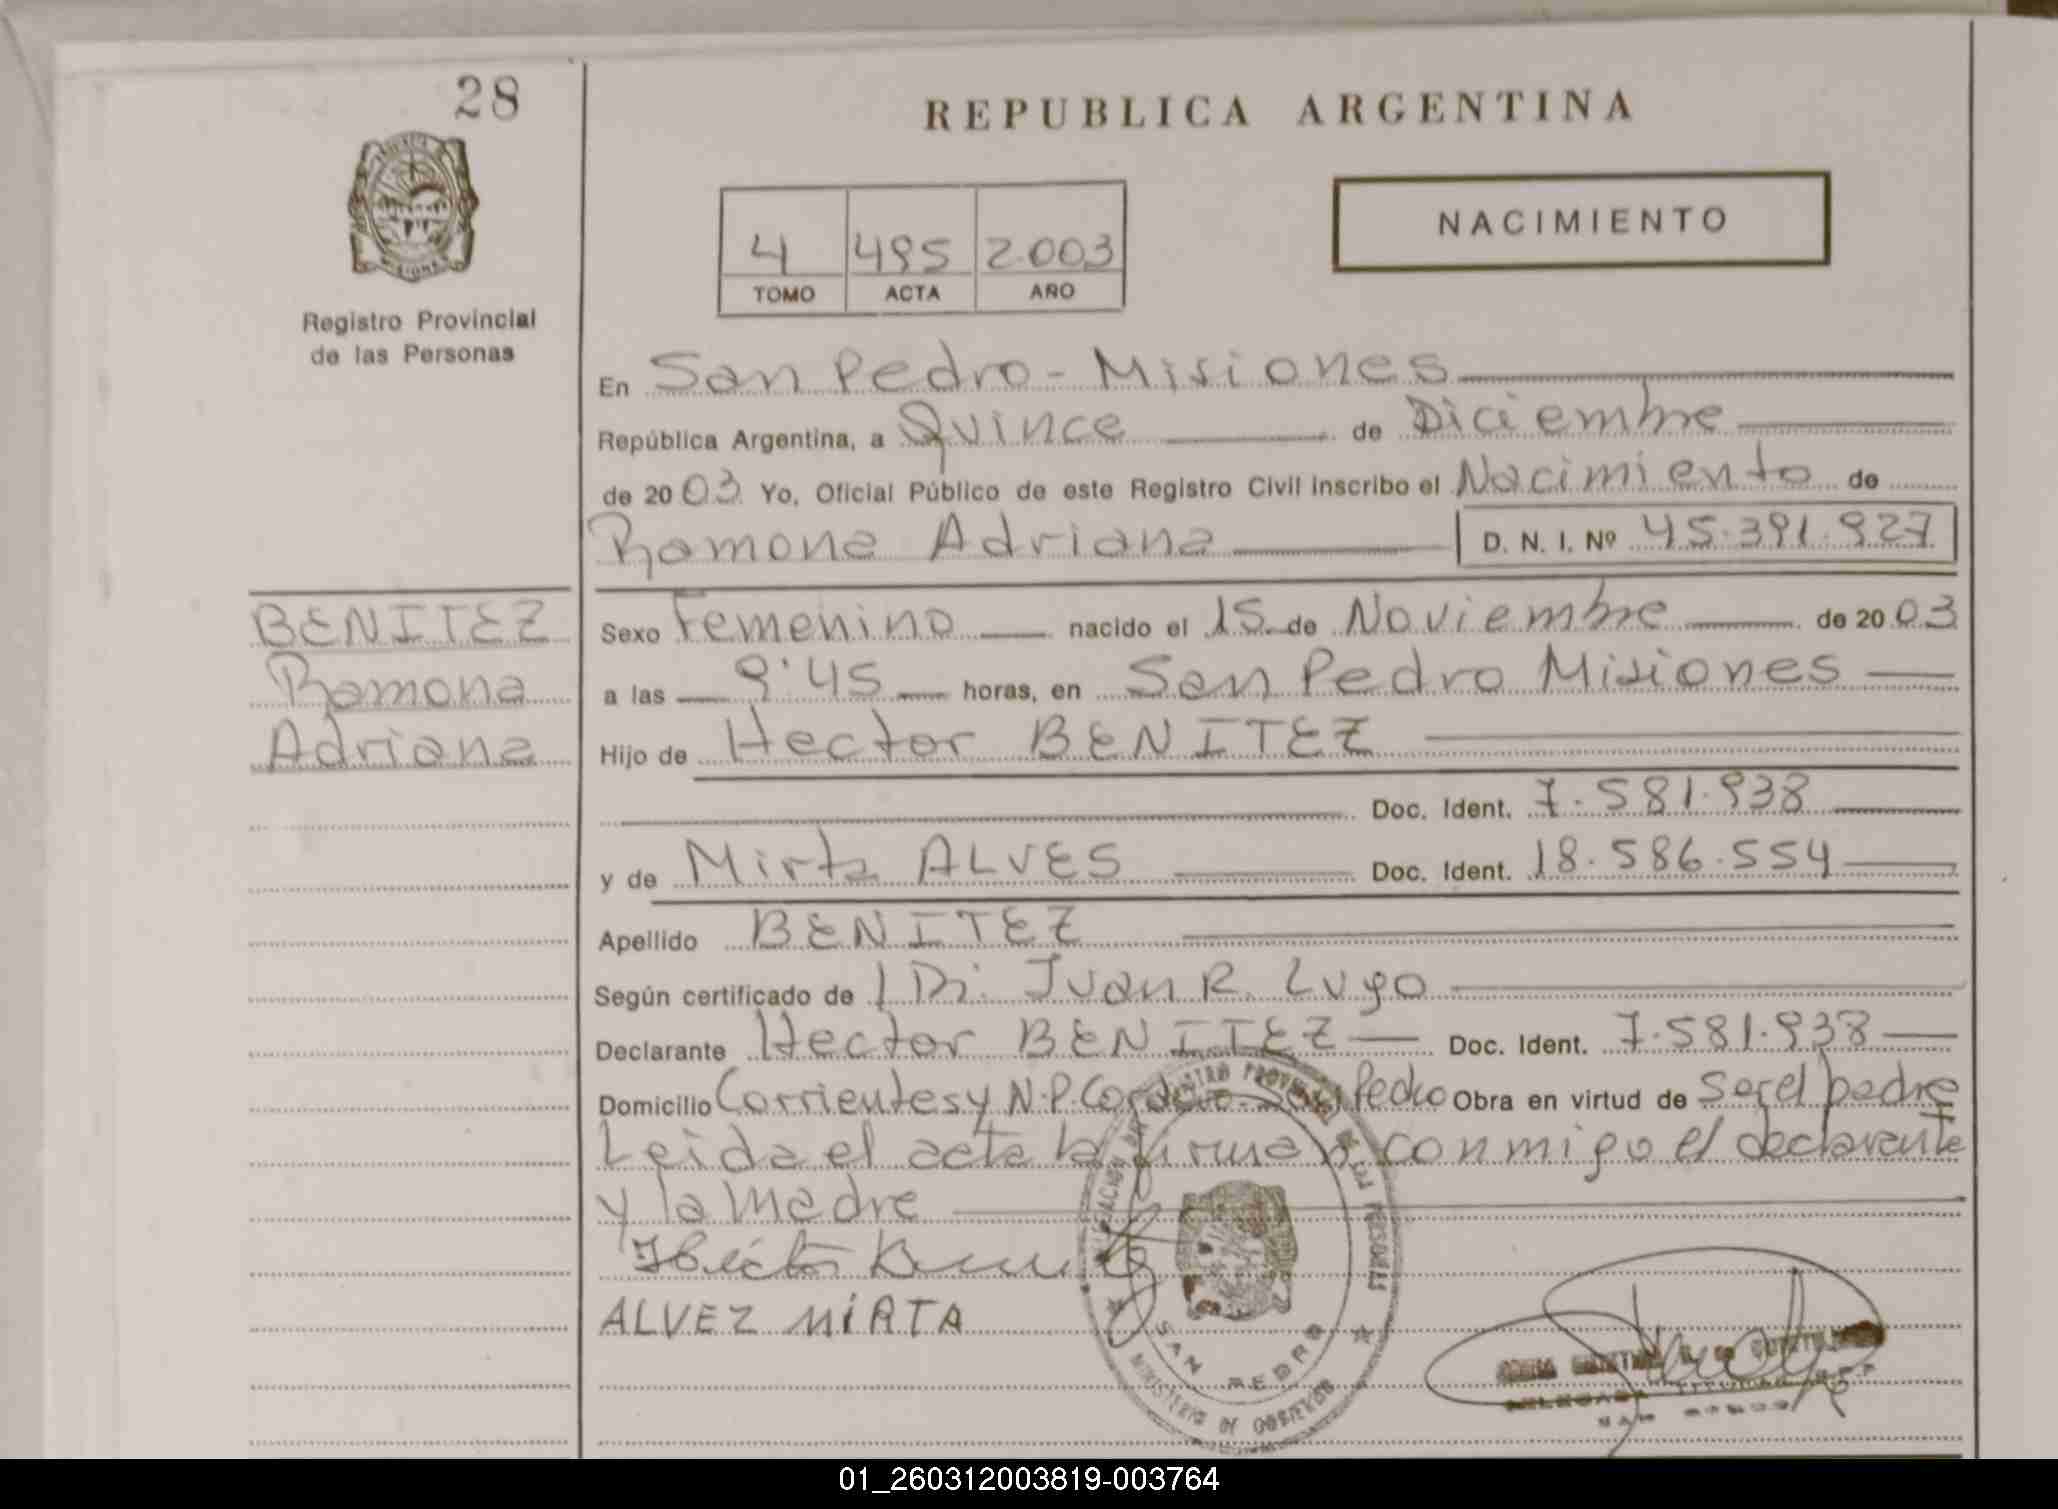 28
REPUBLICA ARGENTINA
MISIONES
Registro Provincial
de las Personas
4 495 2.003
TOMO ACTA AÑO
NACIMIENTO
En San Pedro - Misiones
República Argentina, a Quince de Diciembre
de 2003 Yo, Oficial Público de este Registro Civil inscribo el Nacimiento de
Ramona Adriana D. N. I. Nº 45.391.927
BENITEZ
Ramona
Adriana
Sexo Femenino nacido el 15 de Noviembre de 2003
a las 9'45 horas, en San Pedro Misiones
Hijo de Hector BENITEZ
Doc. Ident. 7.581.938
y de Mirta ALVES Doc. Ident. 18.586.554
Apellido BENITEZ
Según certificado de Juan R. Lugo
Declarante Hector BENITEZ Doc. Ident. 7.581.938
Domicilio Corrientes y N.P. San Pedro Obra en virtud de Ser el padre
Leida el acta la firma conmigo el declarante
y la madre
Héctor
ALVEZ MIRTA
SAN PEDRO
MINISTERIO DE GOBIERNO
01_260312003819-003764